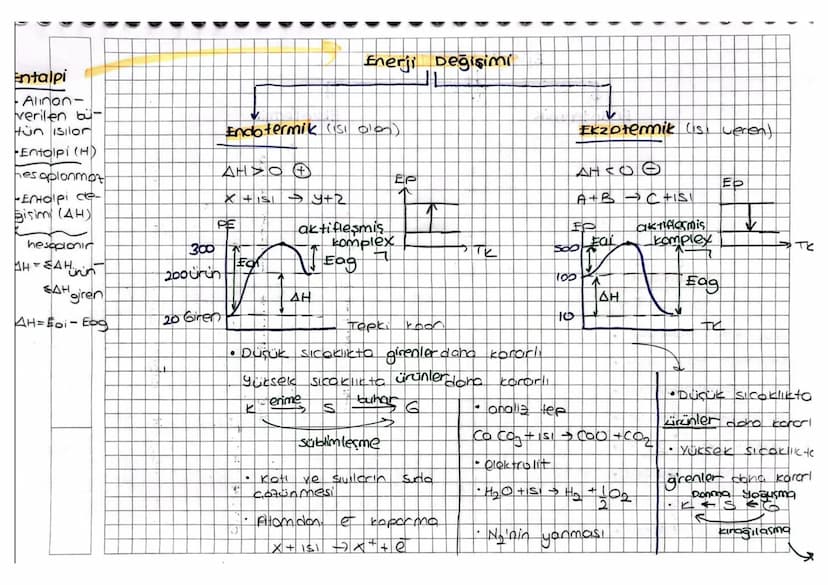 Enerji Değişimi
Entalpi
• Alınan-
verilen bü-
tün ısılar
• Entalpi (H)
hesaplanmaz
• Entalpi de-
ğişimi (ΔH)
hesaplanır
ΔH = ΣΔH ürün -
ΣΔH giren
ΔH = Eai - Eag
Endotermik (ısı alan)
ΔH > 0 ⊕
X + ısı → y+z
PE
300
200 ürün
20 Giren
Eai
aktifleşmiş
kompleks
Eag
ΔH
Tepki koor
Ep
TK
• Düşük sıcaklıkta girenler daha kararlı
Yüksek sıcaklıkta ürünler daha kararlı
K erime → S buhar → G
süblimleşme
• Katı ve sıvıların suda
çözünmesi
• Atomdan e⁻ koparma
X + ısı → X⁺ + e⁻
• analiz tep
CaCO₃ + ısı → CaO + CO₂
• elektrolit
• H₂O + ısı → H₂ + 1/2 O₂
• N₂'nin yanması
Ekzotermik (ısı veren)
ΔH < 0 ⊖
A + B → C + ısı
Ep
TK
EP
500
100
10
Eai
aktifleşmiş
kompleks
Eag
ΔH
TK
• Düşük sıcaklıkta
ürünler daha kararl
• Yüksek sıcaklıkta
girenler daha kararl
Donma yoğuşma
• K ← S ← G
kırağılaşma